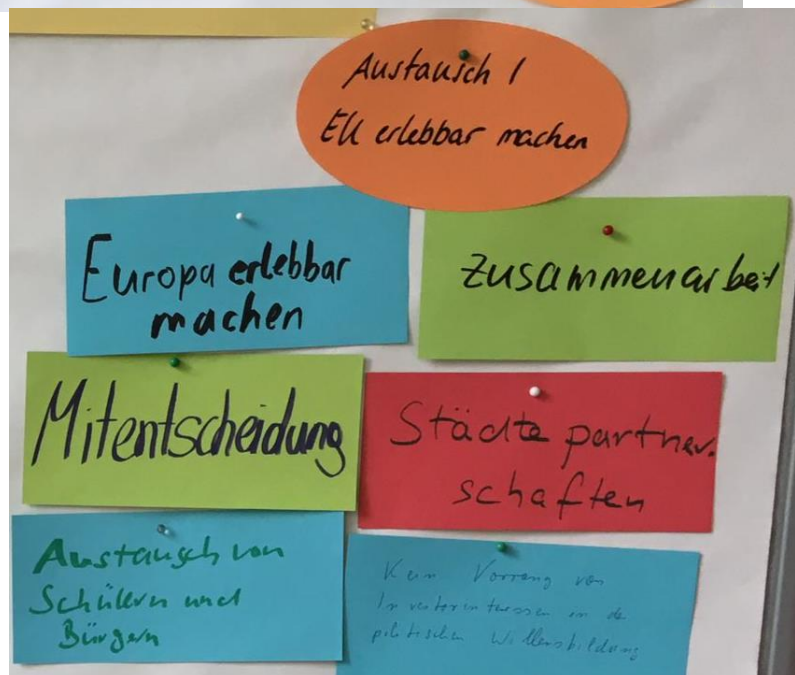 Austausch /
EU erlebbar machen
Europa erlebbar
machen
Zusammenarbeit
Mitentscheidung
Städte partner-
schaften
Austausch von
Schülern und
Bürgern
Kein Vorrang von
Investoreninteressen in der
politischen Willensbildung